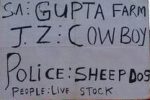 S.A: GUPTA FARM
J.Z: COWBOY
POLICE: SHEEP DOG
PEOPLE: LIVE STOCK